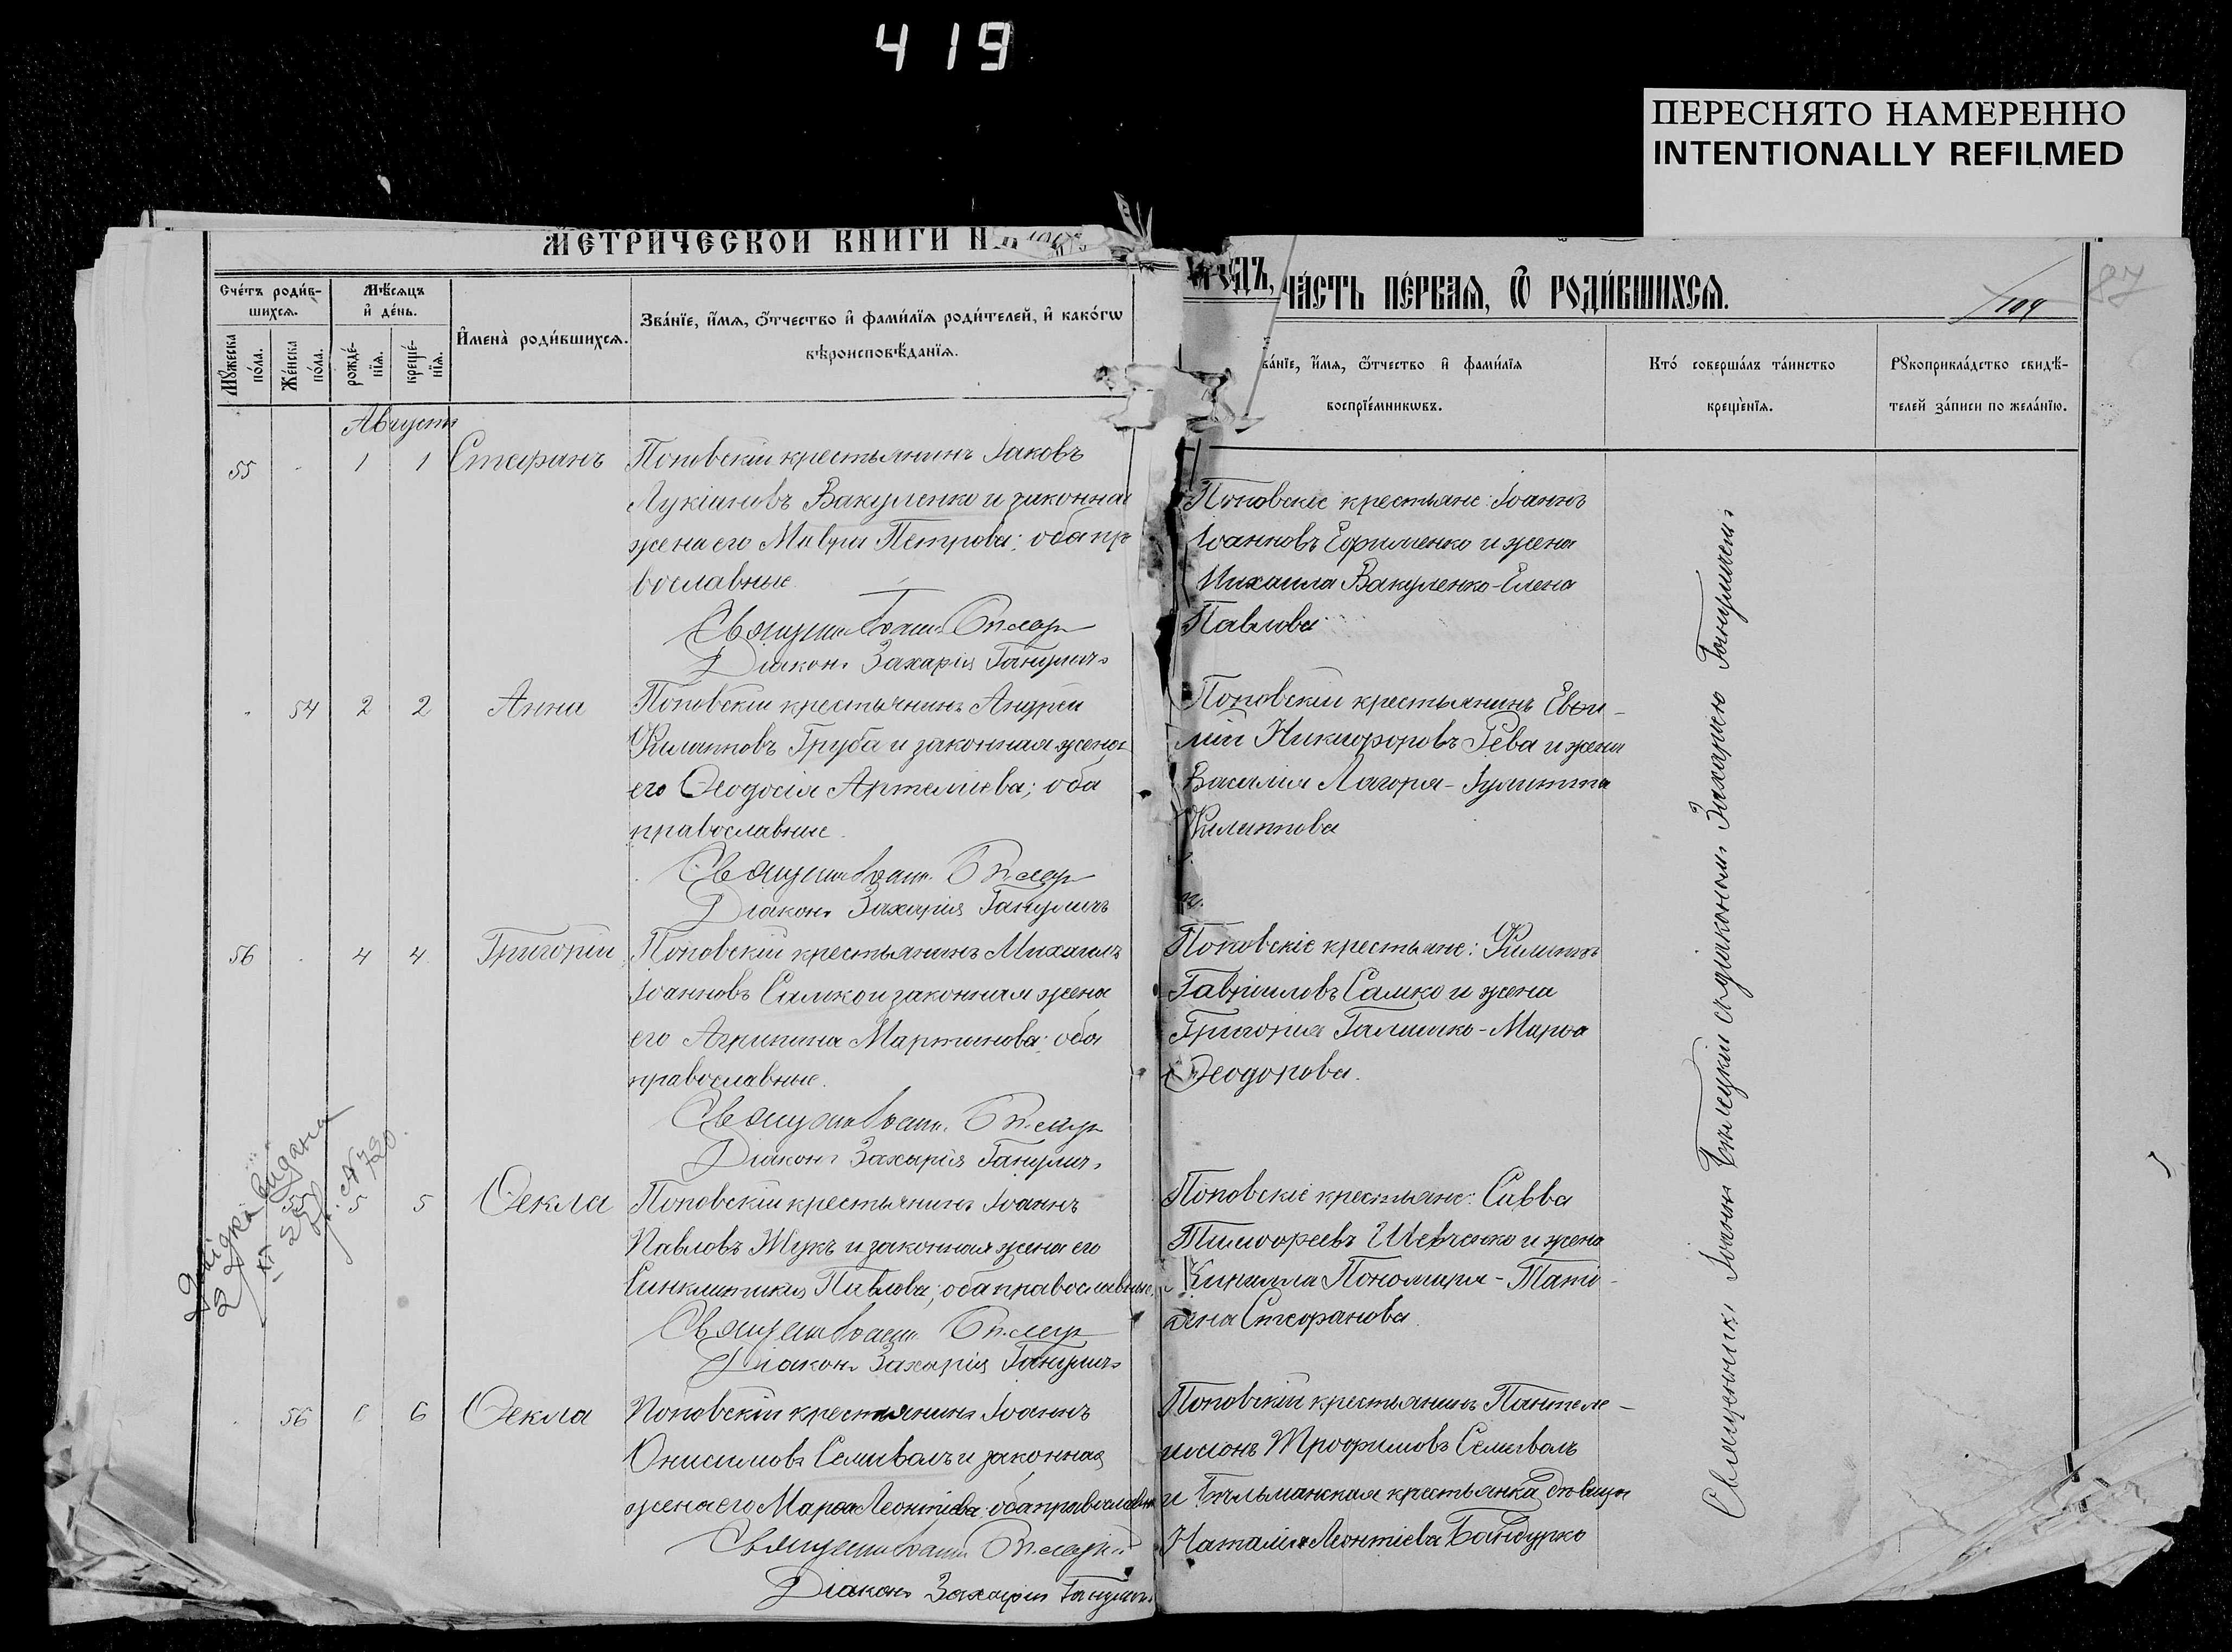 419
ПЕРЕСНЯТО НАМЕРЕННО
INTENTIONALLY REFILMED
МЕТРИЧЕСКОЙ КНИГИ Н
ГОДЪ, ЧА́СТЬ ПЕ́РВАЯ, Ѿ РОДИ́ВШИХСЯ.
104
87
Сче́тъ роди́в-
шихся.
Мѣ́сяцъ
и҆ де́нь.
Мꙋ́жеска
по́ла.
Же́нска
по́ла.
рожде́-
нїя.
креще́-
нїя.
И҆мена̀ роди́вшихся.
Зва́нїе, и҆́мя, ѻ҆́тчество и҆ фами́лїя роди́телей, и҆ како́гѡ
вѣроисповѣ́данїя.
ва́нїе, и҆́мя, ѻ҆́тчество и҆ фами́лїя
воспрїе́мникѡвъ.
Кто̀ соверша́лъ та́инство
креще́нїя.
Рꙋкоприкла́дство свидѣ́-
телей за́писи по жела́нїю.
Августъ
55 - 1 1 Стефанъ Поповскій крестьянинъ Іаковъ
Лукіановъ Вакуленко и законная
жена его Мавра Петрова; оба пра
вославные.
Священникъ Іоаннъ
Діаконъ Захарія Ганулич
Поповскіе крестьяне: Іоаннъ
Іоанновъ Ефименко и жена
Михаила Вакуленко - Елена
Павлова
- 54 2 2 Анна Поповскій крестьянинъ Андрей
Филипповъ Груба и законная жена
его Ѳеодосія Артеміева; оба
православные.
Священникъ Іоаннъ
Діаконъ Захарія Ганулич
Поповскій крестьянинъ Евѳи-
мій Никифоровъ Рева и жена
Василія Лагоря - Іулитта
Филиппова
56 - 4 4 Григорій Поповскій крестьянинъ Михаилъ
Іоанновъ Самко и законная жена
его Агрипина Мартинова; оба
православные.
Священникъ Іоаннъ
Діаконъ Захарія Ганулич
Поповскіе крестьяне: Филиппъ
Гавріиловъ Самко и жена
Григорія Галишко - Марѳа
Ѳеодорова.
видана
№ 730.
55 5 5 Ѳекла Поповскій крестьянинъ Іоаннъ
Павловъ Жукъ и законная жена его
Синклитикія Павлова; оба православные.
Священникъ Іоаннъ
Діаконъ Захарія Ганулич
Поповскіе крестьяне: Савва
Тимоѳеевъ Шевченко и жена
Кирилла Пономаря - Таті-
яна Стефанова.
- 56 6 6 Ѳекла Поповскій крестьянинъ Іоаннъ
Онисимовъ Семиволъ и законная
жена его Марѳа Леонтіева; оба православн
Священникъ Іоаннъ
Діаконъ Захарія Ганулич
Поповскій крестьянинъ Пантеле-
имонъ Трофимовъ Семиволъ
и Бѣльманская крестьянка дѣвица
Наталія Леонтіева Бандурко
Священникъ Іоаннъ съ діакономъ Захаріею Гануличемъ